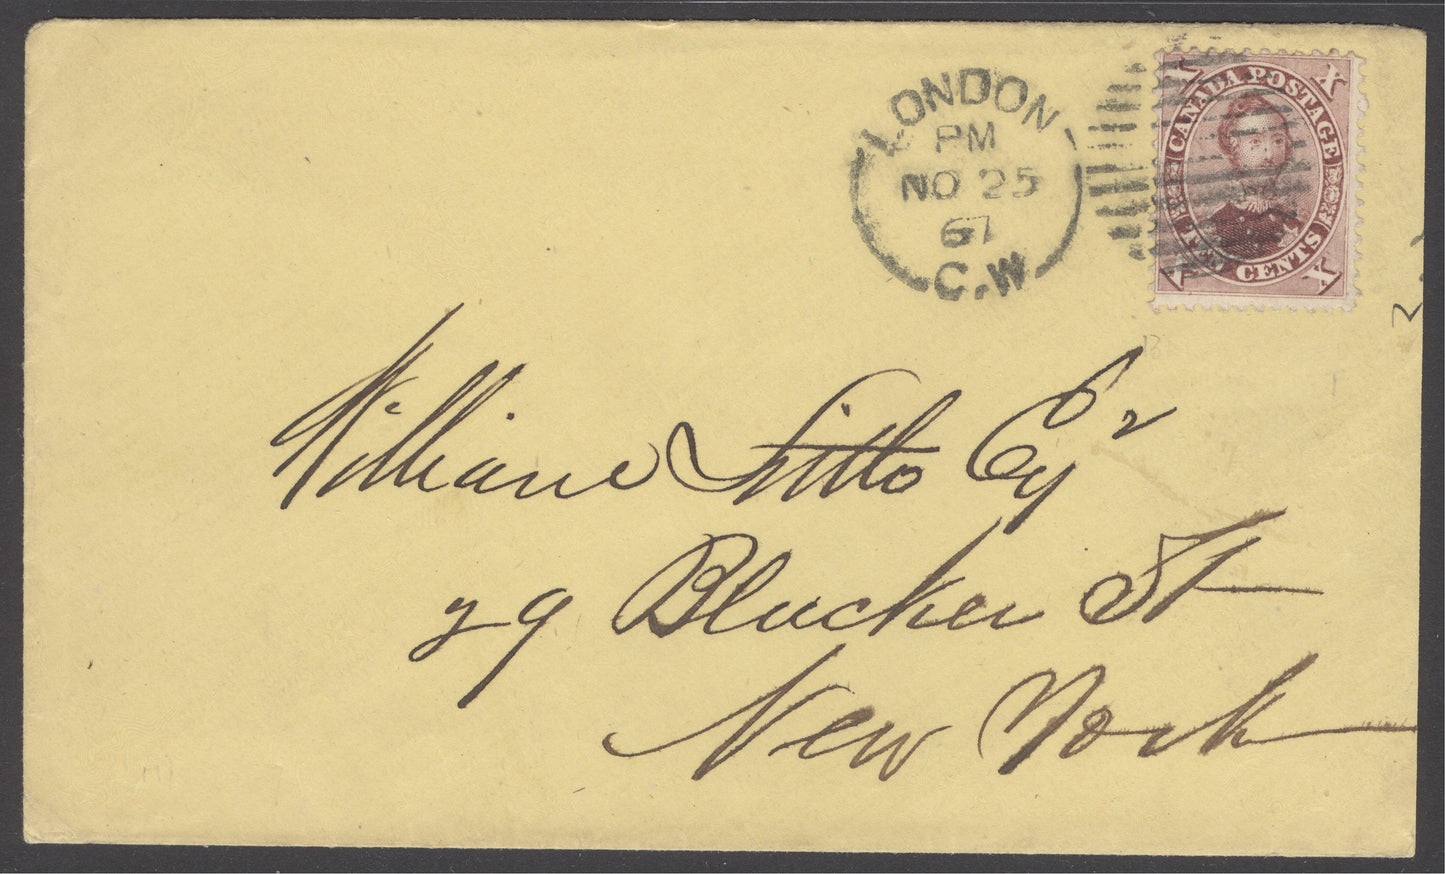 LONDON
PM
NO 25
67
C.W.
X X
CANADA POSTAGE
TEN CENTS
X X
William
29 Blucker St
New York